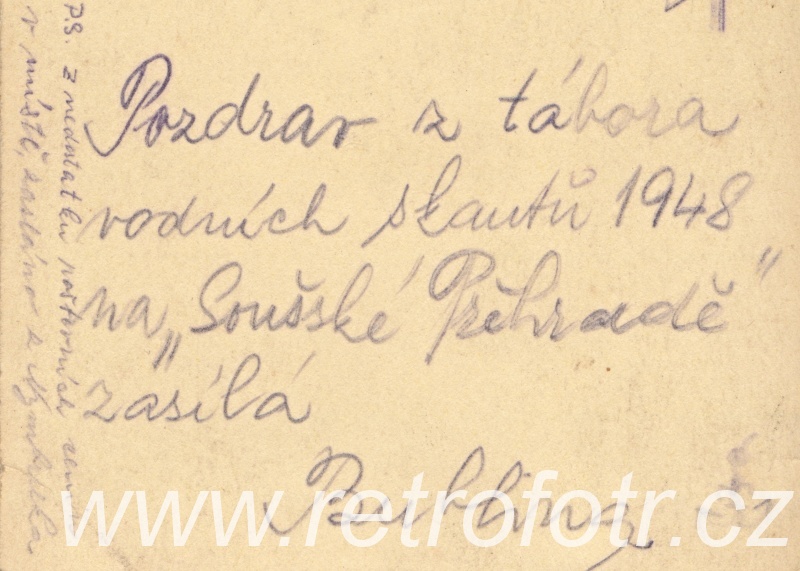 Pozdrav z tábora
vodních skautů 1948
na „Soušské Přehradě"
zasílá
Bublina
P.S. z nedostatku poštovních
v místě, zasláno z
www.retrofotr.cz